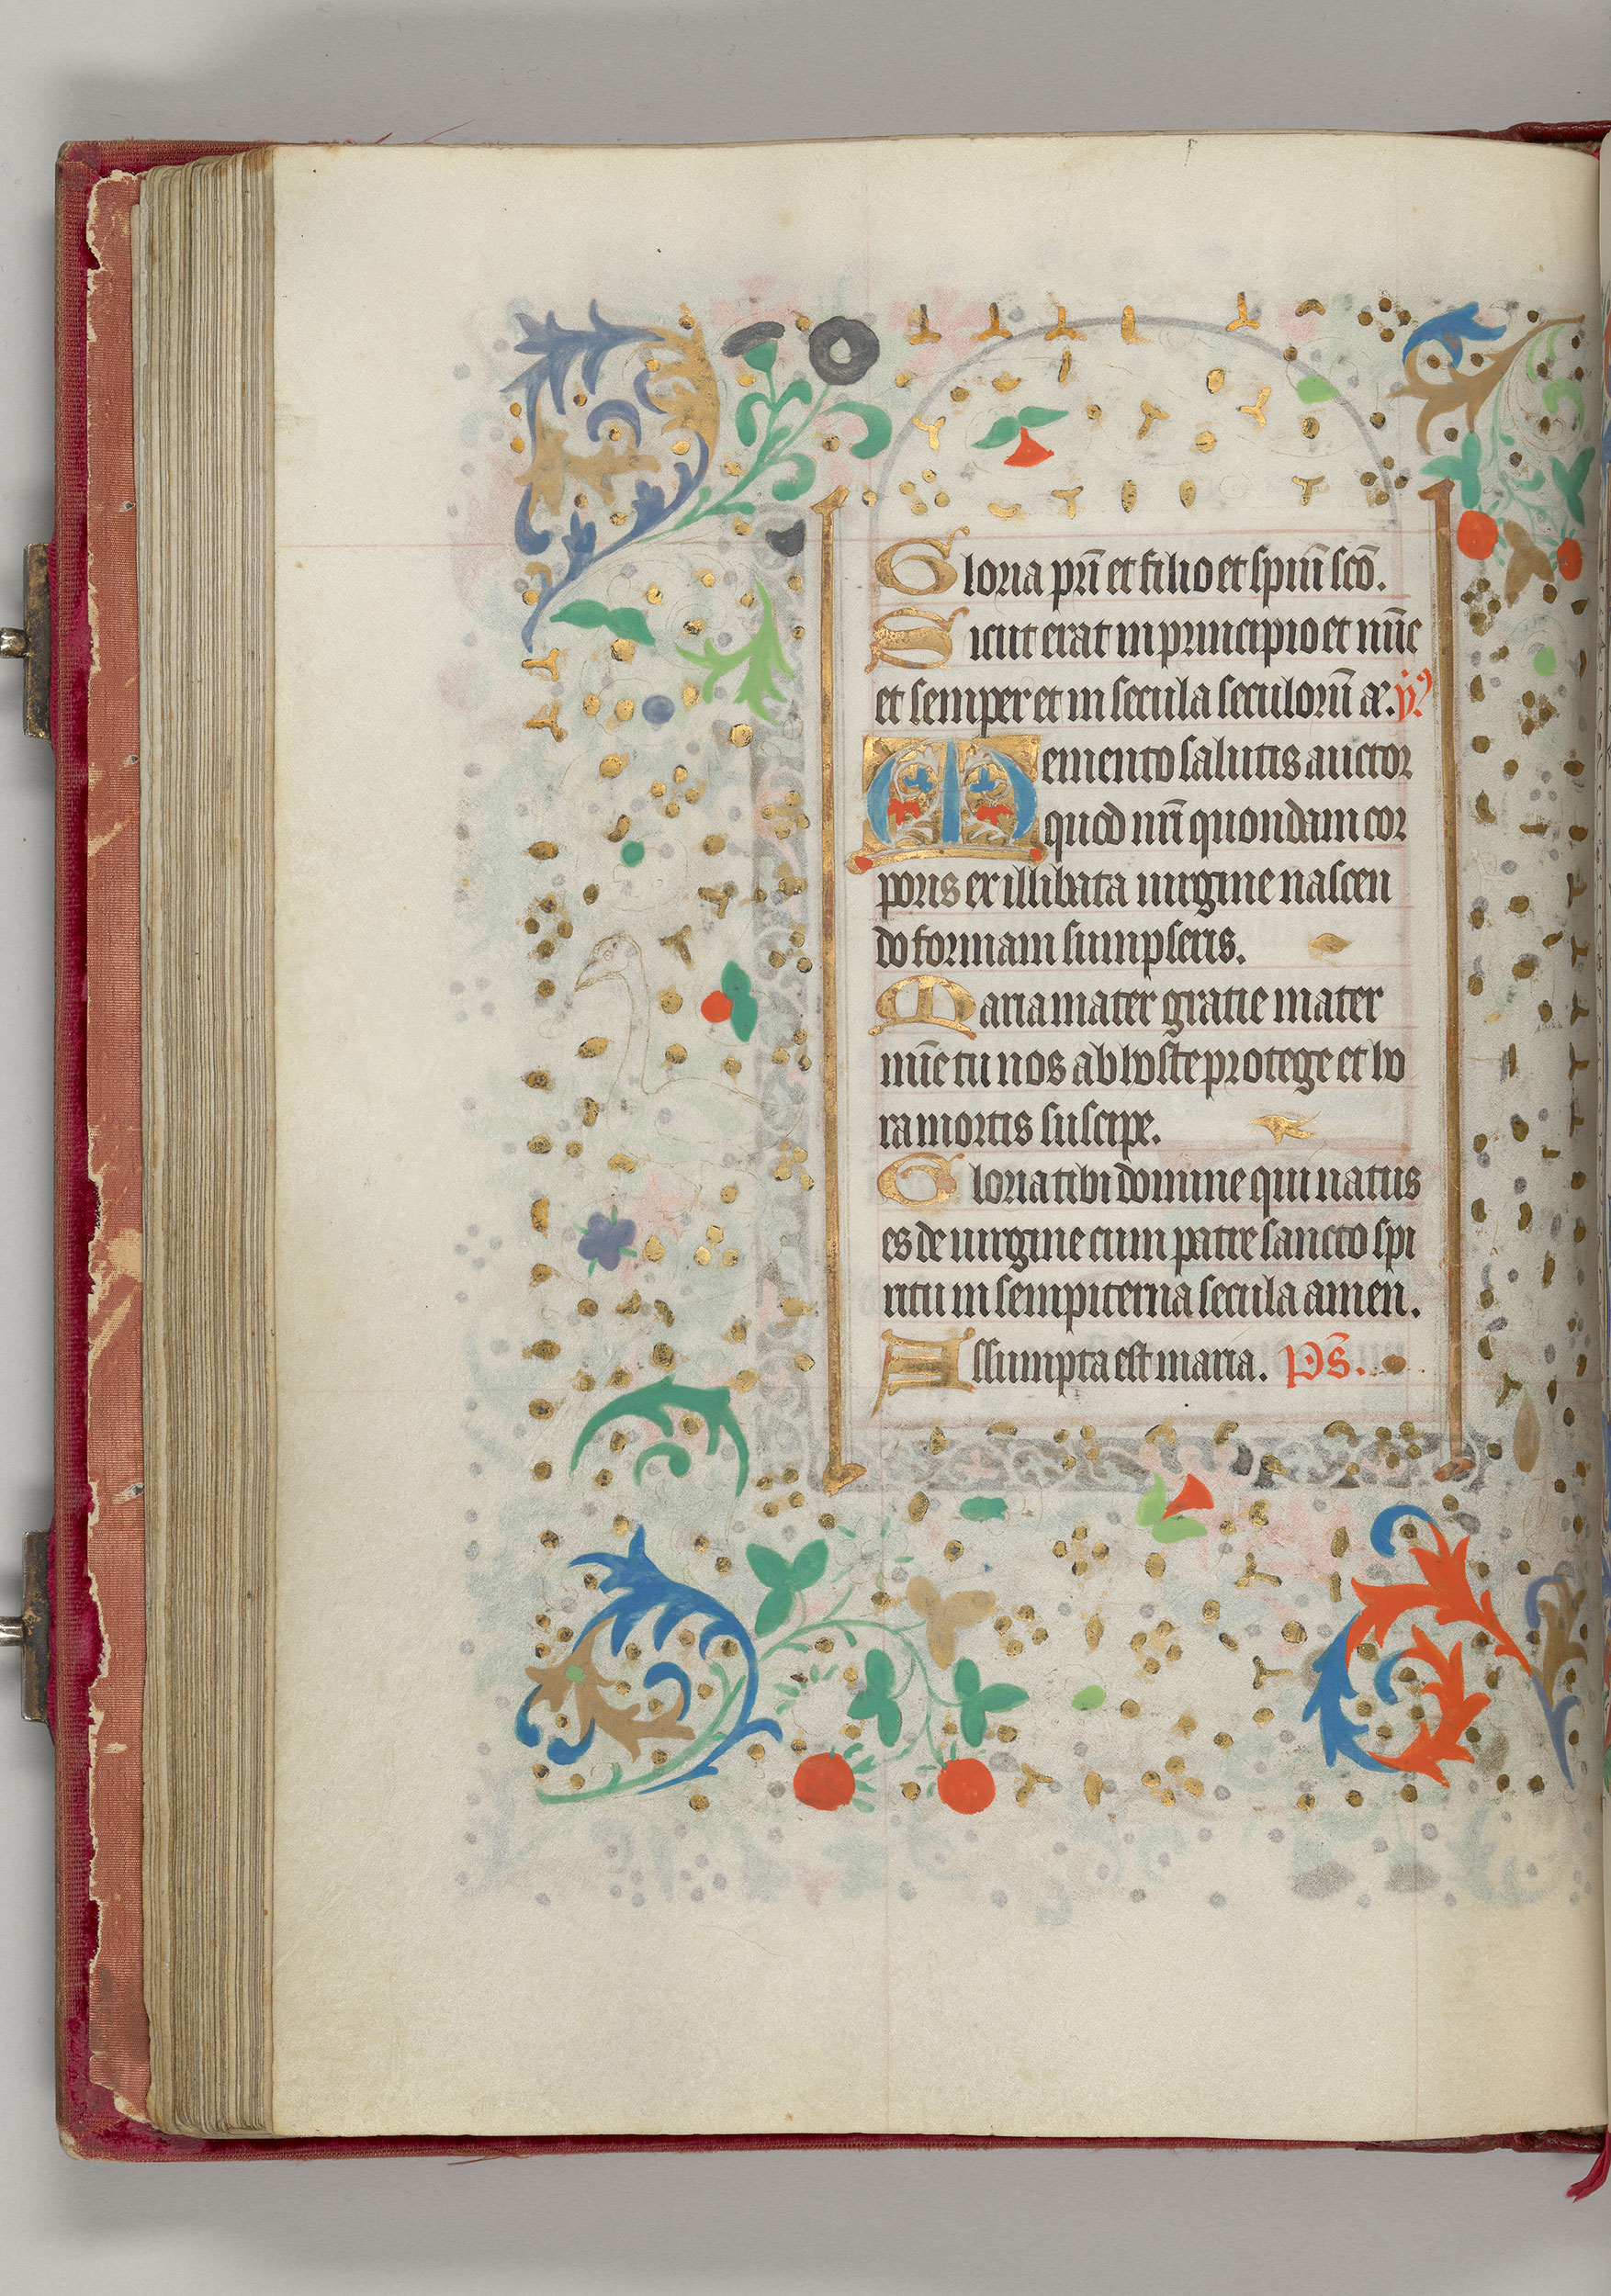 Gloria pr̄i et filio et spiūi sc̄o.
Sicut erat in principio et nūc
et semper et in secula seculorū a&. ẏ9
Memento salutis auctor
quod nr̄i quondam cor
poris ex illibata uirgine nascen
do formam sumpseris.
Maria mater gratie mater
mīe tu nos ab hoste protege et ho
ra mortis suscipe.
Gloria tibi domine qui natus
es de uirgine cum patre sancto spi
ritu in sempiterna secula amen.
Assumpta est maria. Ps̄.